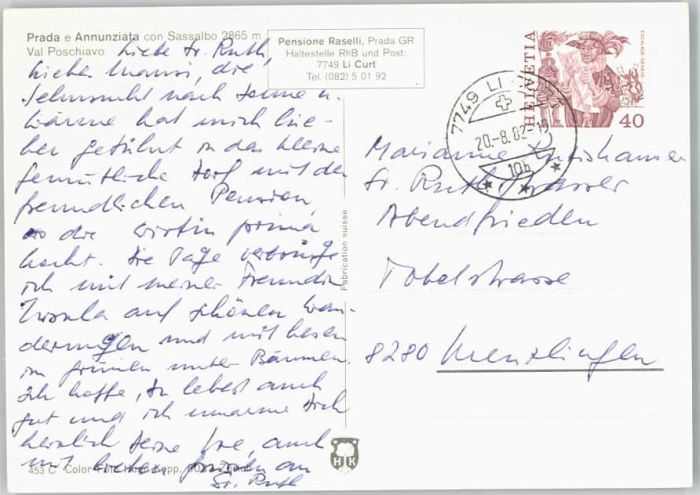 Prada e Annunziata con Sassalbo 2865 m
Val Poschiavo
Liebe Sr. Ruth,
Liebe Mausi, die
Sehnsucht nach Sonne u.
Wärme hat mich hie-
her geführt in das kleine
gemütliche Dorf mit der
freundlichen Pension,
wo die Wirtin prima
kocht. Die Tage verbringe
ich mit meiner Freundin
Ursula auf schönen Wan-
derungen und mit lesen
im grünen unter Bäumen.
Ich hoffe, Du lebest auch
gut und ich umarme Dich
herzlich Deine auch
mit lieben Grüssen an
Sr. Ruth
453 C Color
Pensione Raselli, Prada GR
Haltestelle RhB und Post.
7749 Li Curt
Tel. (082) 5 01 92
Fabrication suisse
HK
HELVETIA
40
7749 LI
20.-8.82
Marianne
Sr. Ruth
Abendfrieden
Tobelstrasse
8280 Kreuzlingen